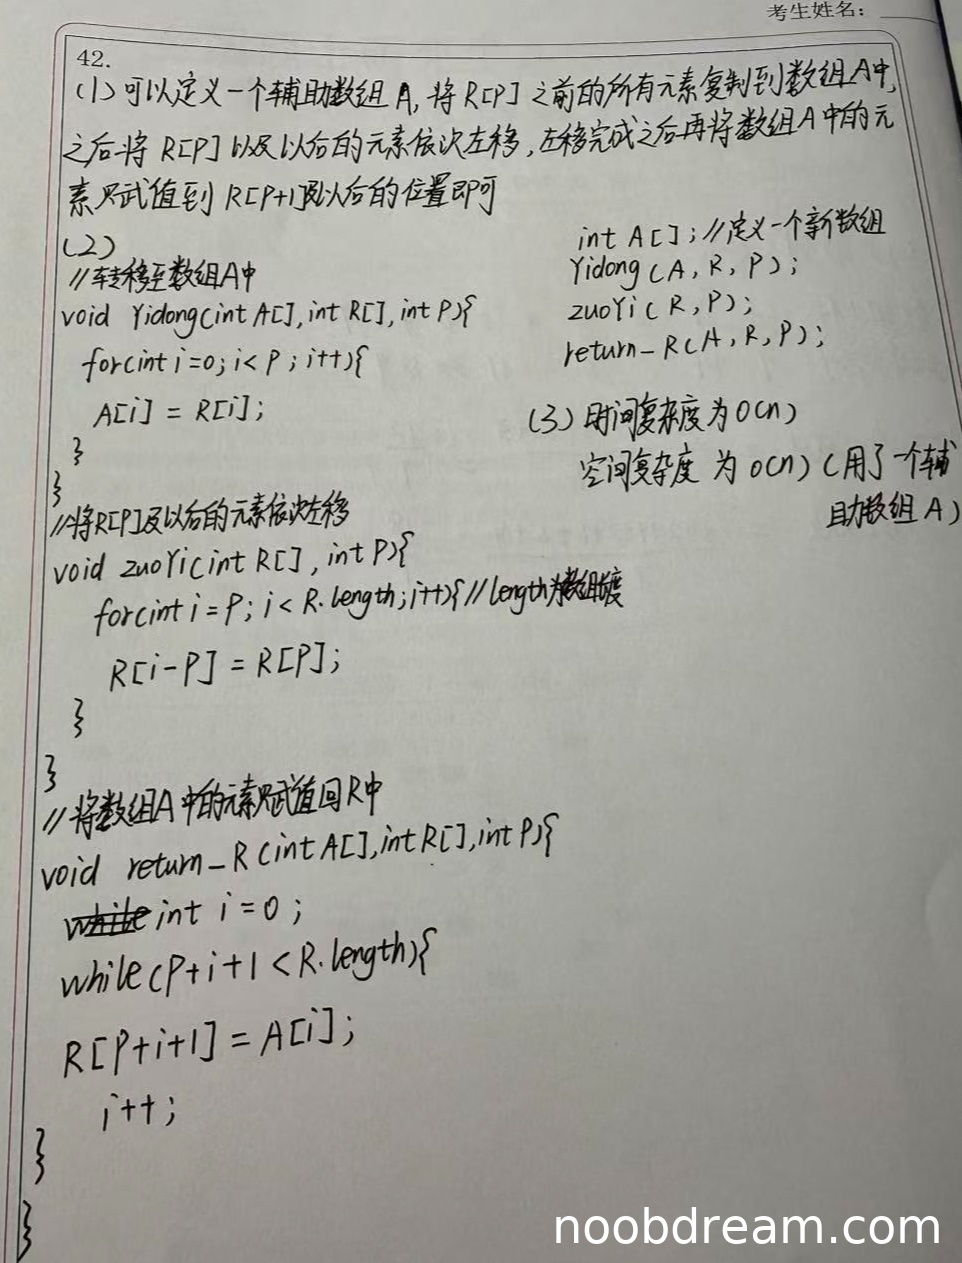 考生姓名:
42.
(1) 可以定义一个辅助数组A,将R[P]之前的所有元素复制到数组A中,
之后将R[P]以及以后的元素依次左移,左移完成之后再将数组A中的元
素赋值到R[P+1]及以后的位置即可
(2)
//转移至数组A中
void Yidong(int A[],int R[],int P){
for(int i=0;i<P;i++){
A[i] = R[i];
}
}
//将R[P]及以后的元素依次左移
void zuoYi(int R[],int P){
for(int i=P;i<R.length;i++){//length为数组长度
R[i-P] = R[P];
}
}
//将数组A中的元素赋值回R中
void return_R(int A[],int R[],int P){
int i=0;
while(P+i+1<R.length){
R[P+i+1] = A[i];
i++;
}
}
int A[];//定义一个新数组
Yidong(A,R,P);
zuoYi(R,P);
return_R(A,R,P);
(3)时间复杂度为O(n)
空间复杂度为O(n)(用了一个辅
助数组A)
noobdream.com